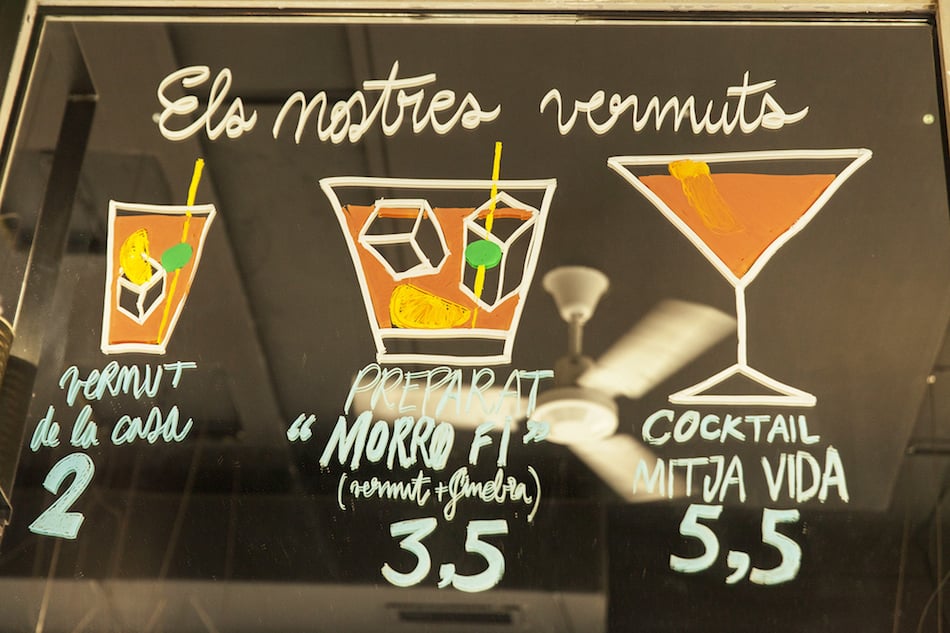 Els nostres vermuts
VERMUT
de la casa
2
PREPARAT
"MORRO FI"
(vermut + Ginebra)
3,5
COCKTAIL
MITJA VIDA
5,5